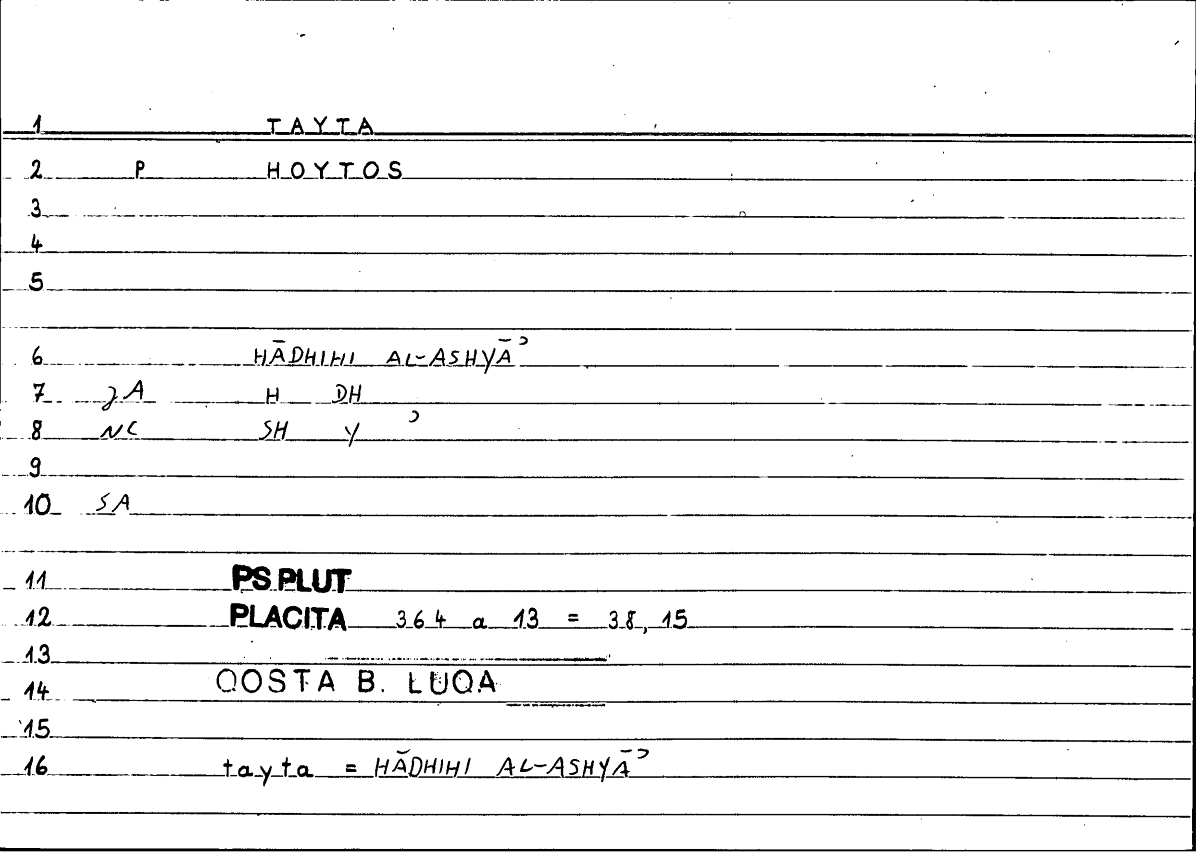 1 TAYTA
2 P HOYTOS
3
4
5
6 HĀDHIHI AL-ASHYĀʾ
7 JA H DH
8 NC SH Y ʾ
9
10 SA
11 PS.PLUT
12 PLACITA 364 a 13 = 38, 15
13
14 QOSTA B. LUQA
15
16 tayta = HĀDHIHI AL-ASHYĀʾ